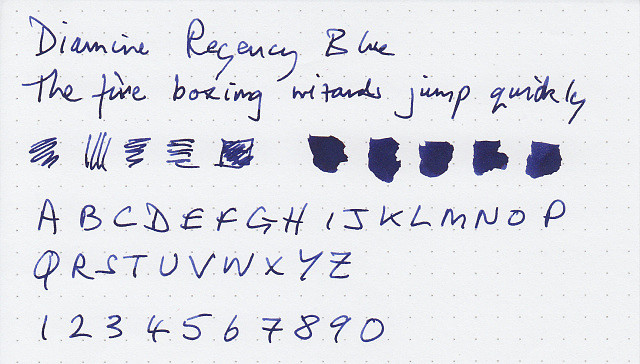 Diamine Regency Blue
The five boxing wizards jump quickly
A B C D E F G H I J K L M N O P
Q R S T U V W X Y Z
1 2 3 4 5 6 7 8 9 0